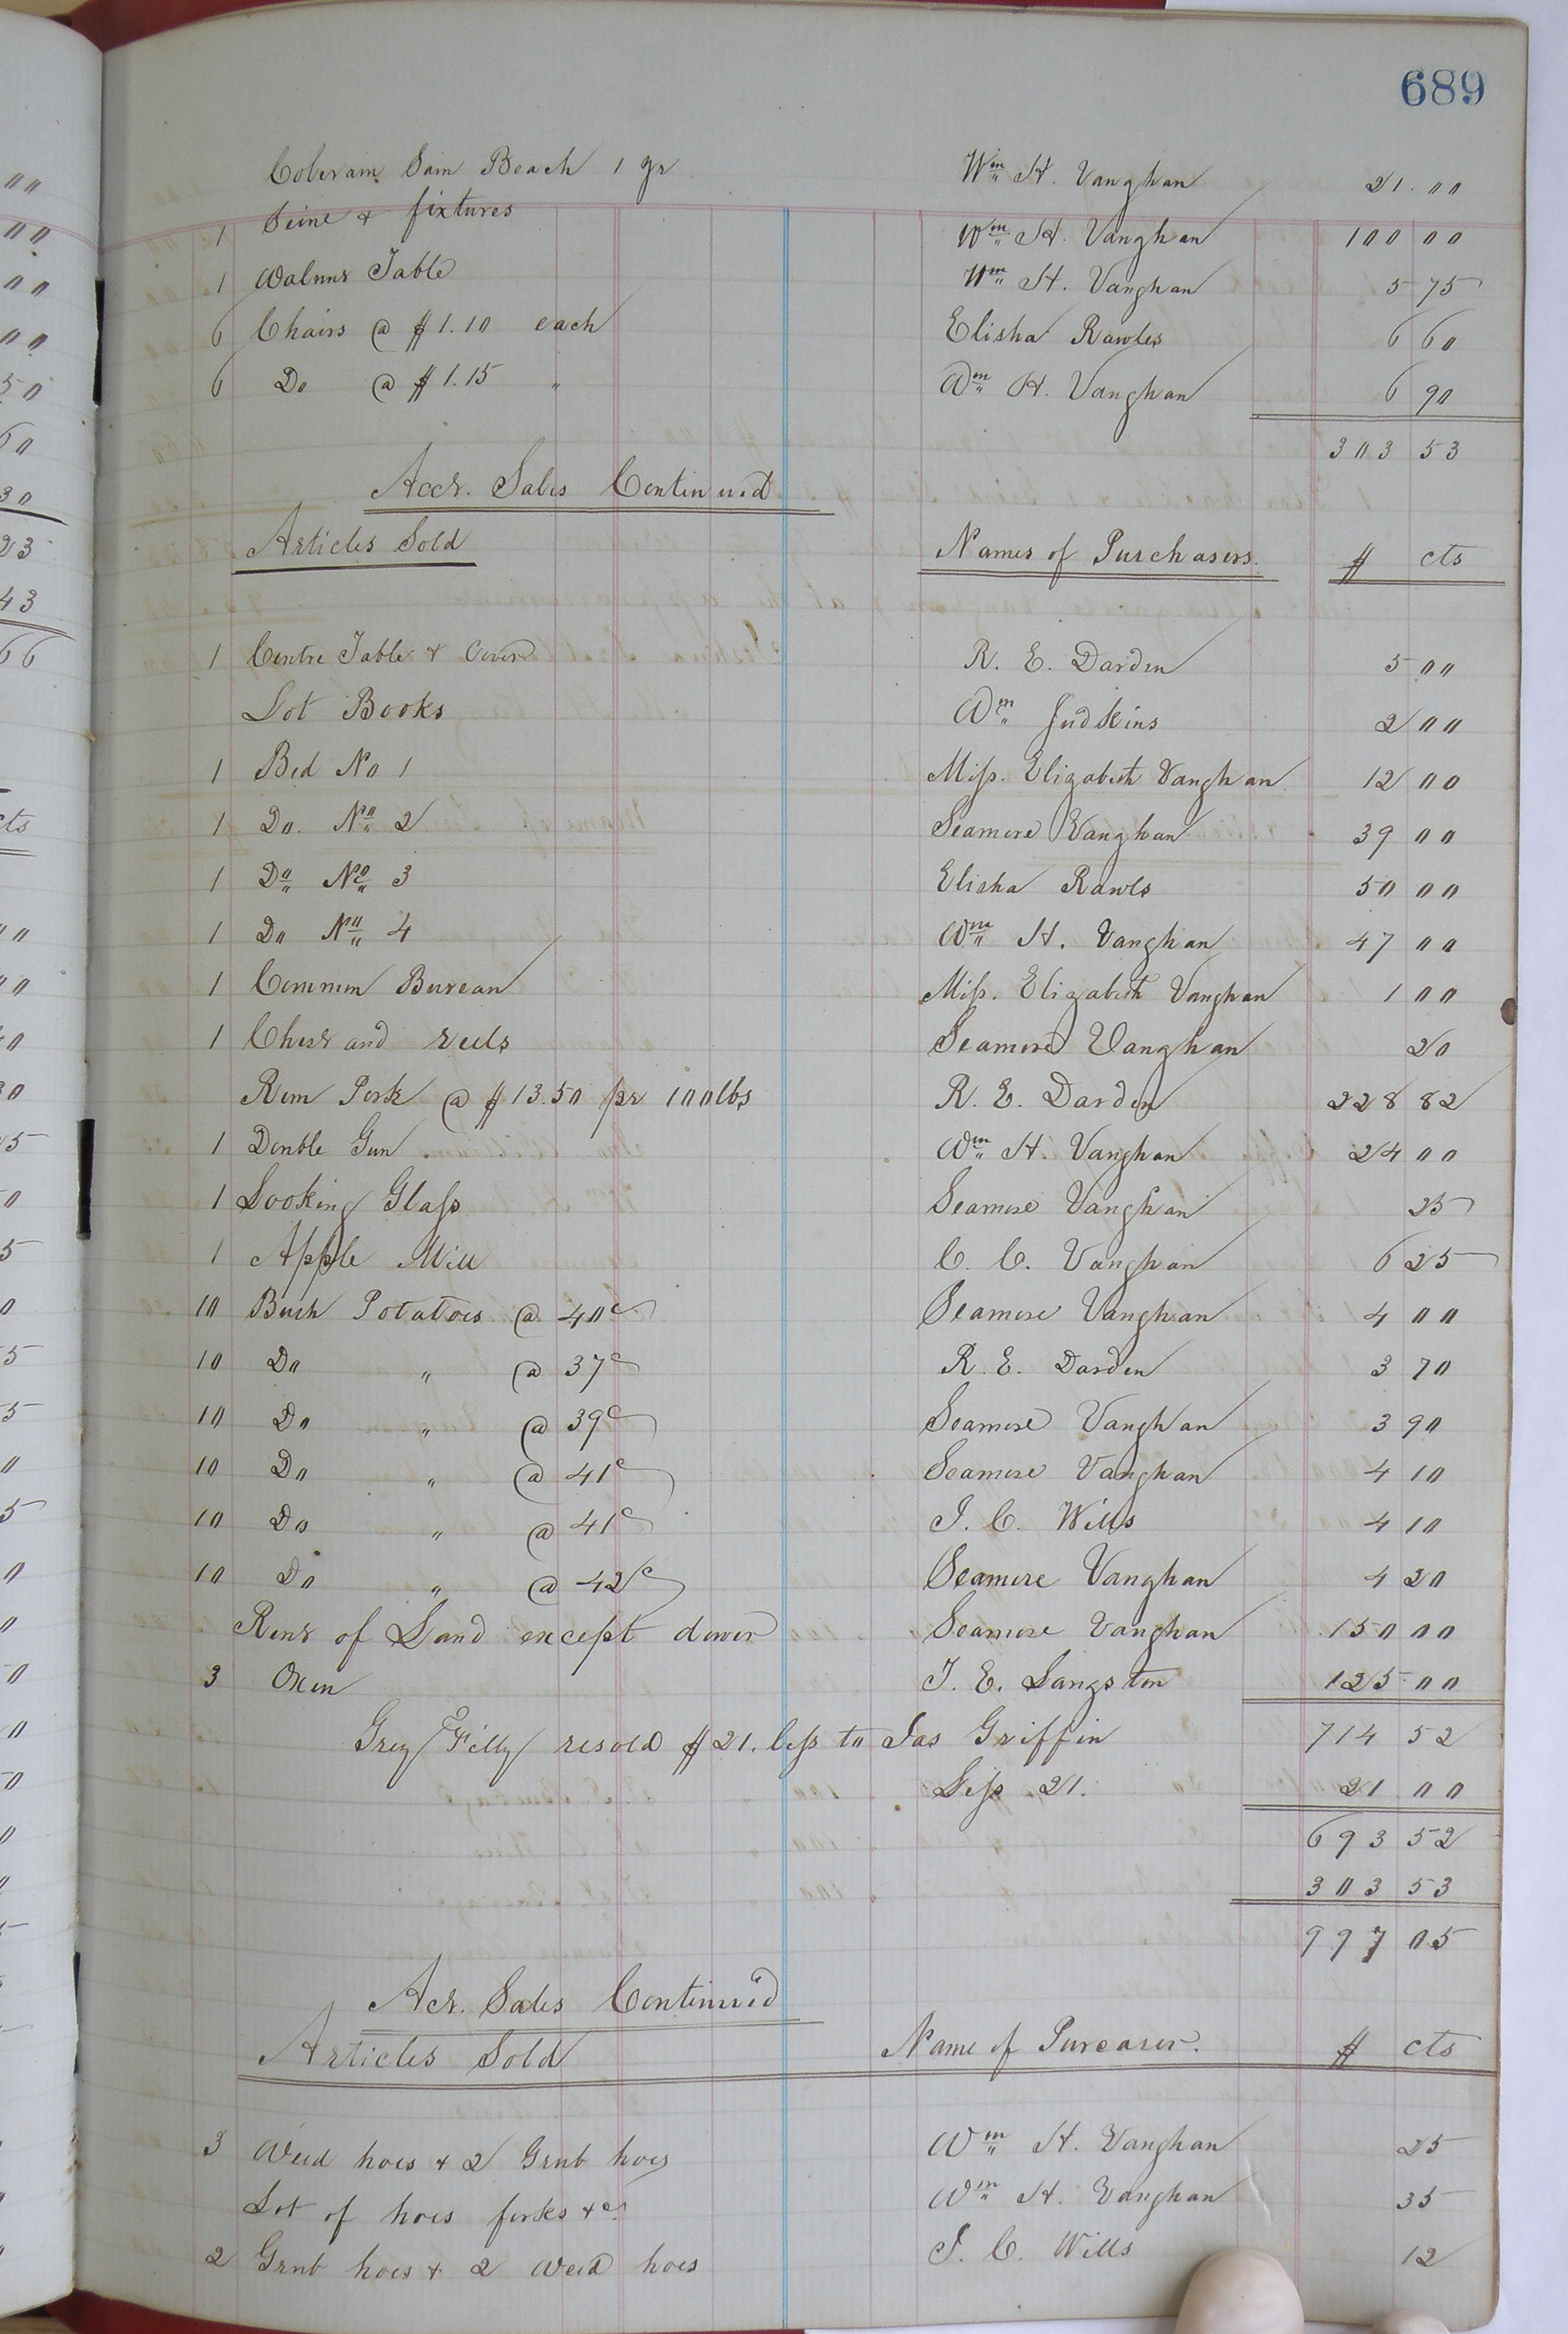 689
Colerain Sain Beach 1 yr Wm H. Vaughan 21.00
1 Seine & fixtures Wm H. Vaughan 100 00
1 Walnut Table Wm H. Vaughan 5 75
6 Chairs @ $1.10 each Elisha Rawles 6 60
6 Do @ $1.15 " Wm H. Vaughan 6 90
303 53
Acct. Sales Continued
Articles Sold Names of Purchasers. $ cts
1 Centre Table & Cover R. E. Darden 5 00
Lot Books Wm Judkins 2 00
1 Bed No 1 Miss. Elizabeth Vaughan 12 00
1 Do. No 2 Seamore Vaughan 39 00
1 Do No 3 Elisha Rawls 50 00
1 Do No 4 Wm H. Vaughan 47 00
1 Common Bureau Miss. Elizabeth Vaughan 1 00
1 Chest and reels Seamore Vaughan 20
Rem Pork @ $13.50 per 100lbs R. E. Darden 228 82
1 Double Gun Wm H. Vaughan 24 00
1 Looking Glass Seamore Vaughan 25
1 Apple Mill C. C. Vaughan 6 25
10 Bush Potatoes @ 40c Seamore Vaughan 4 00
10 Do " @ 37c R. E. Darden 3 70
10 Do " @ 39c Seamore Vaughan 3 90
10 Do " @ 41c Seamore Vaughan 4 10
10 Do " @ 41c J. C. Wills 4 10
10 Do " @ 42c Seamore Vaughan 4 20
Rent of Land except dower Seamore Vaughan 150 00
3 Oxen T. E. Langston 125 00
Grey Filly resold $21. less to Jas Griffin 714 52
Less 21. 21 00
693 52
303 53
997 05
Act. Sales Continued
Articles Sold Name of Purcaser. $ cts
3 Weed hoes & 2 Grub hoes Wm H. Vaughan 25
Lot of hoes forks &c Wm H. Vaughan 35
2 Grub hoes & 2 Weed hoes J. C. Wills 12